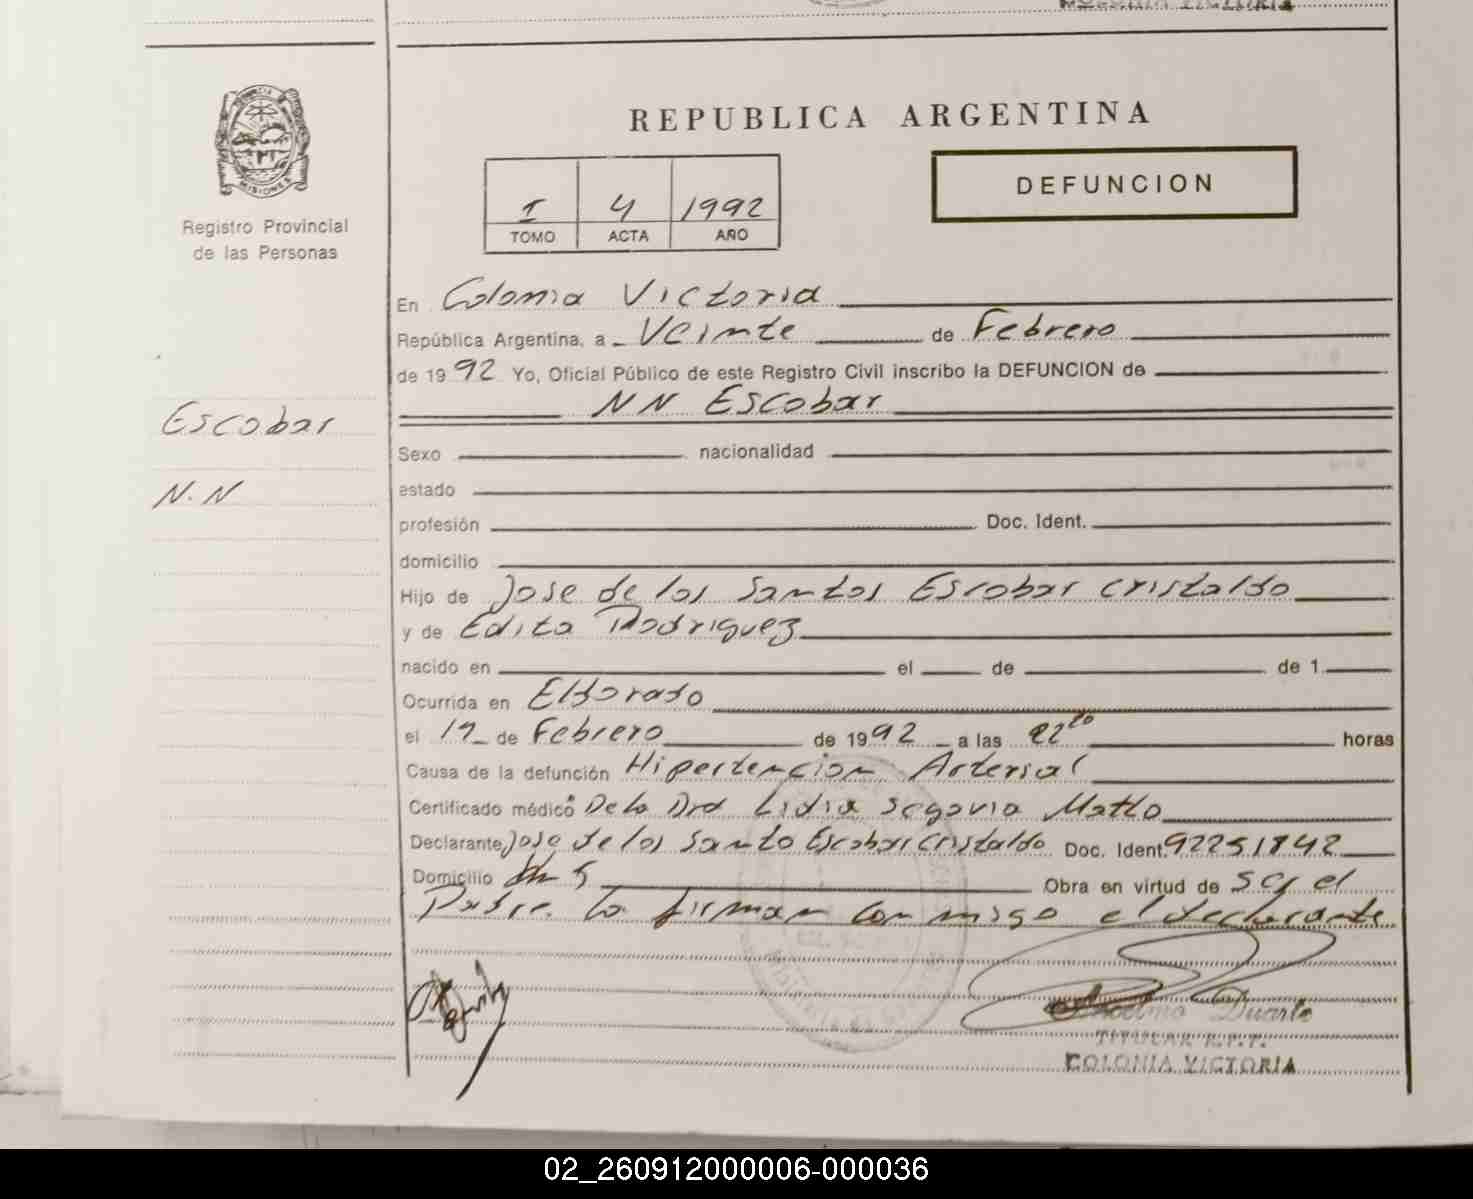 COLONIA VICTORIA
PROVINCIA DE
MISIONES
Registro Provincial
de las Personas
REPUBLICA ARGENTINA
DEFUNCION
I 4 1992
TOMO ACTA AÑO
En Colonia Victoria
República Argentina, a Veinte de Febrero
de 1992 Yo, Oficial Público de este Registro Civil inscribo la DEFUNCION de
NN Escobar
Escobar
N.N
Sexo nacionalidad
estado
profesión Doc. Ident.
domicilio
Hijo de Jose de los Santos Escobar Cristaldo
y de Edita Rodriguez
nacido en el de de 1
Ocurrida en Eldorado
el de Febrero de 1992 a las 22 20 horas
Causa de la defunción Hipertencion Arterial
Certificado médico De la Dra Lidia Segovia
Declarante Jose de los Santo Escobar Cristaldo Doc. Ident. 92251842
Domicilio 5 Obra en virtud de ser el
Padre. La firman conmigo el declarante
Anselmo Duarte
TITULAR R.P.P.
COLONIA VICTORIA
02_260912000006-000036